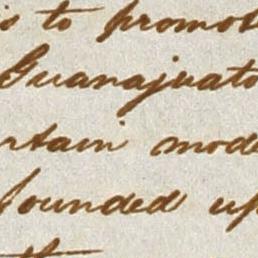 is to promot
Guanajuato
rtain mode
founded up